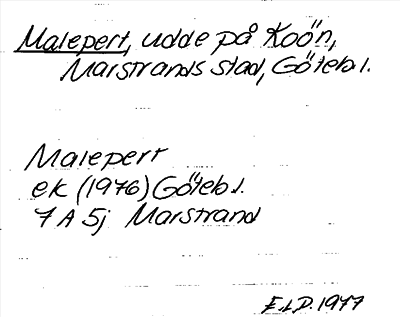 Malepert, udde på Koön,
Marstrands stad, Götebl.
Malepert
ek (1976) Götebl.
7 A 5j Marstrand
E.L.D. 1977